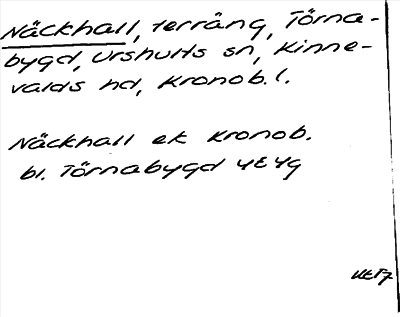 Näckhall, terräng, Törna-
bygd, Urshults sn, Kinne-
valds hd, Kronob. l.
Näckhall ek Kronob.
bl. Törnabygd 4E4g